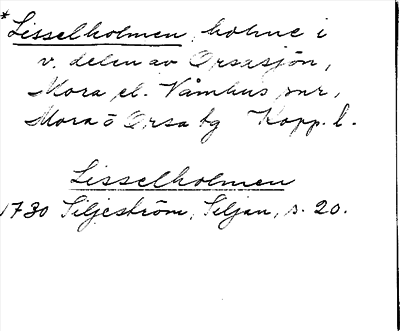 *Lisselholmen, holme i
v. delen av Orsasjön,
Mora el. Våmhus snr,
Mora o Orsa tg Kopp. l.
Lisselholmen
1730 Siljeström, Siljan, s. 20.